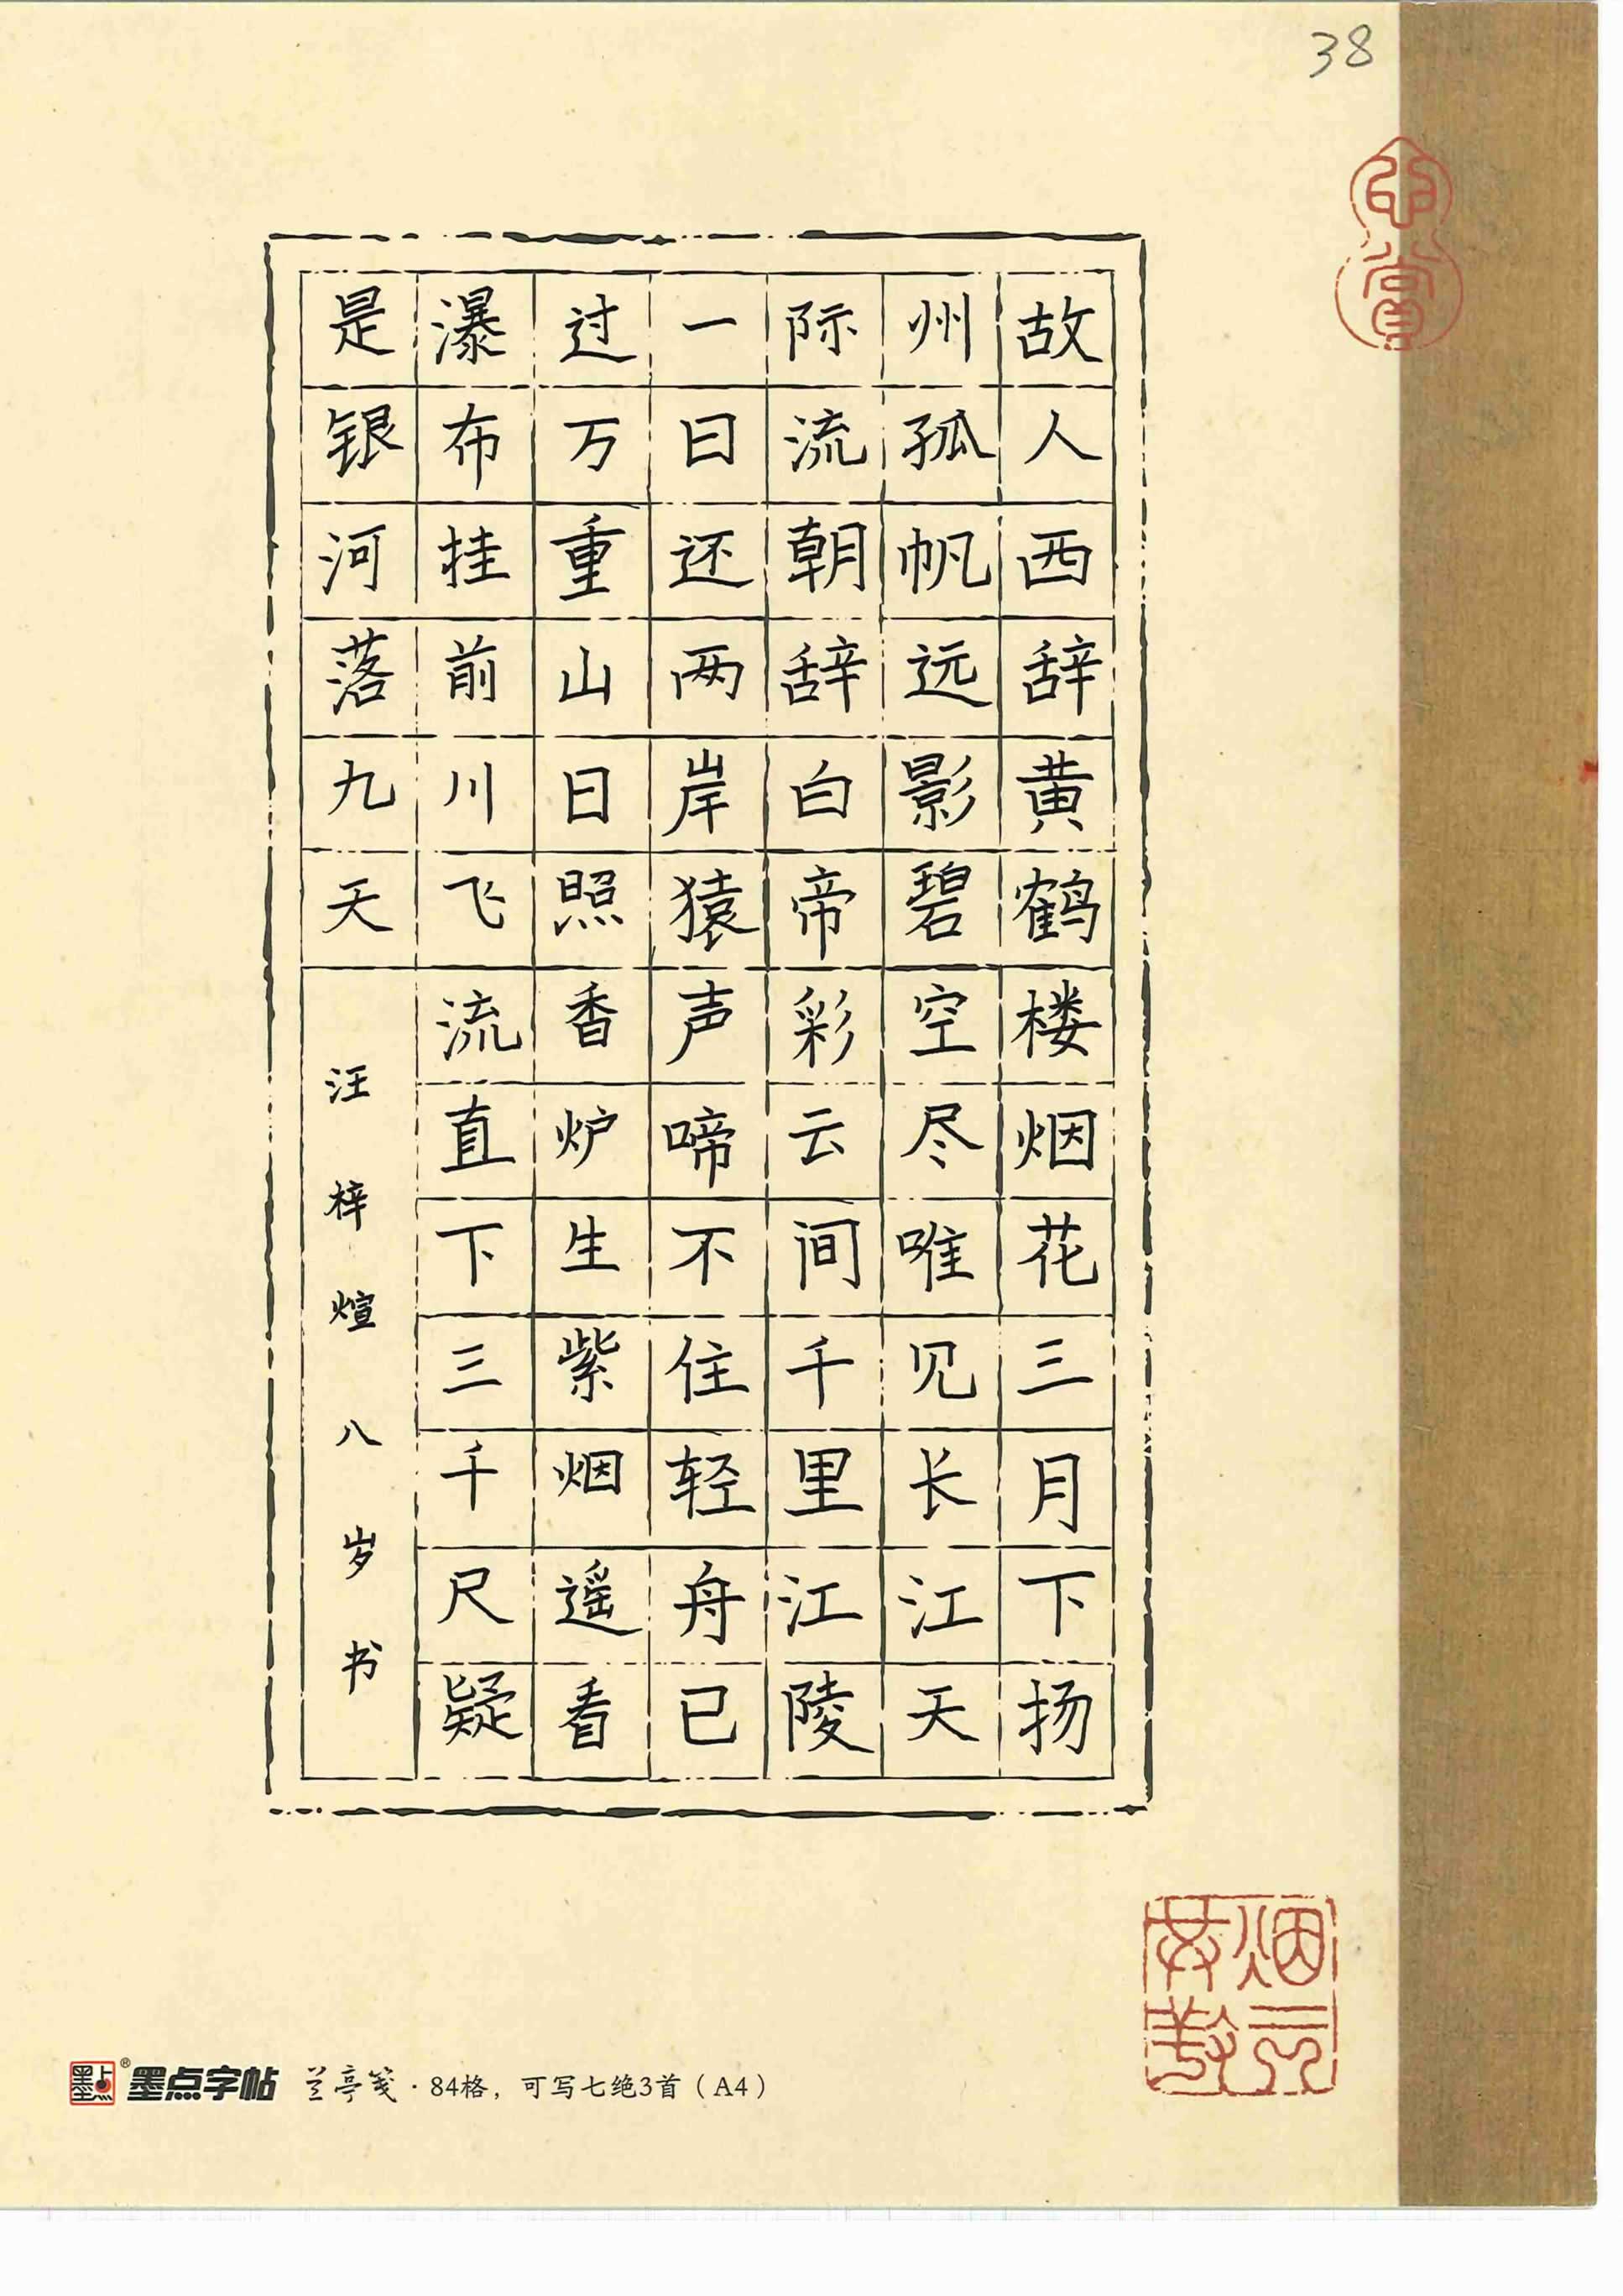 38
故人西辞黄鹤楼烟花三月下扬
州孤帆远影碧空尽唯见长江天
际流朝辞白帝彩云间千里江陵
一日还两岸猿声啼不住轻舟已
过万重山日照香炉生紫烟遥看
瀑布挂前川飞流直下三千尺疑
是银河落九天
汪梓煊八岁书
墨点® 墨点字帖 兰亭笺·84格，可写七绝3首（A4）